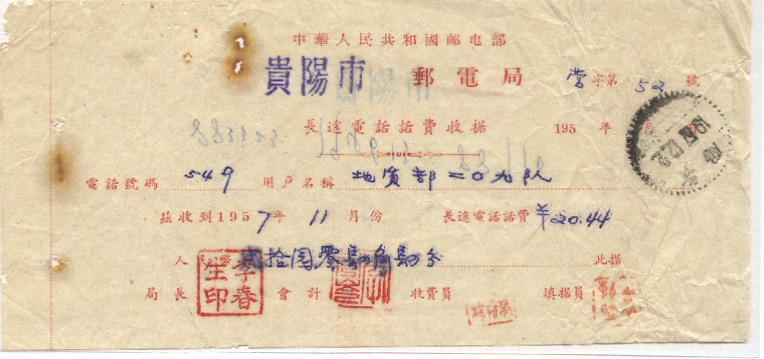 中華人民共和國邮电部
貴陽市 郵電局 营字第 52 號
長途電話話費收据 195 年
電話號碼 549 用戶名稱 地質部二〇九队
茲收到1957年 11 月份 長途電話話費 ￥20.44
人民幣 貳拾圓零 角 分 此据
局長 李春生印 會計 收費員 填据員